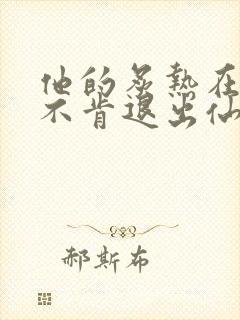 他的炙热在
不肯退出仙
郝斯布